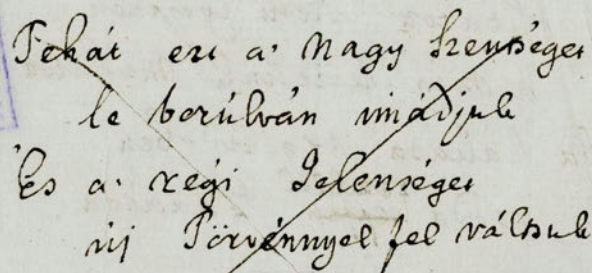 Tehát ezt a' Nagy Szentséget
le borúlván imádjuk
És a' régi Jelenséget
új Törvénnyel fel váltsuk